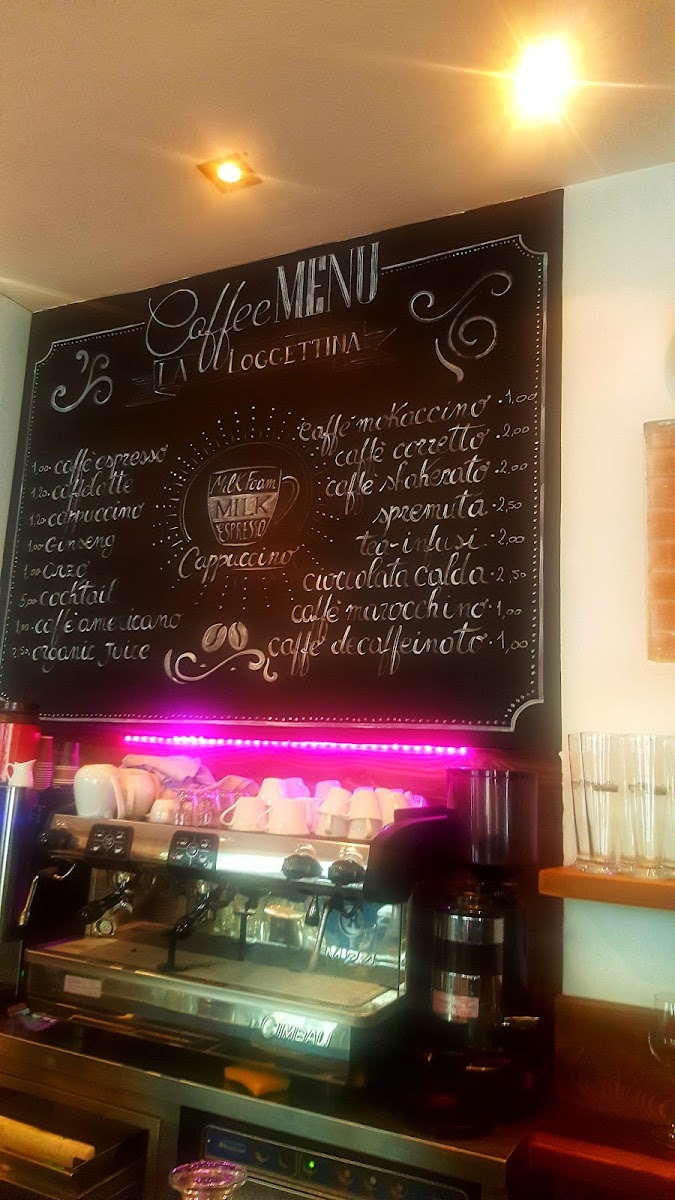 Coffee MENU
LA LOGGETTINA
1,00 caffè espresso
1,20 caffelatte
1,20 cappuccino
1,00 Ginseng
1,00 orzo
5,00 cocktail
1,00 caffè americano
2,50 organic Juice
Milk Foam
MILK
ESPRESSO
Cappuccino
caffè moKaccino • 1,00
caffè corretto • 2,00
caffè shakerato • 2,00
spremuta • 2,50
tea-infusi • 2,00
cioccolata calda • 2,50
caffè marocchino • 1,00
caffè decaffeinato • 1,00
CIMBALI